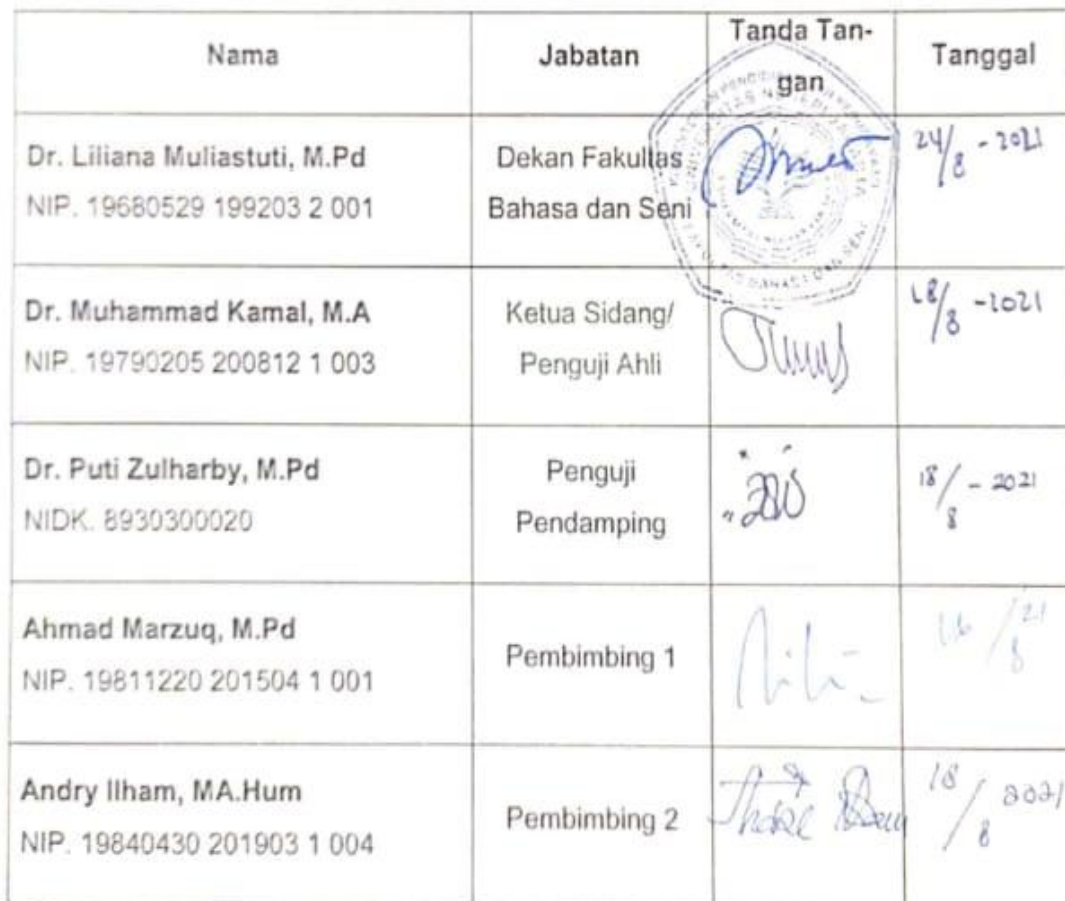 Nama
Jabatan
Tanda Tan-
gan
Tanggal
Dr. Liliana Muliastuti, M.Pd
NIP. 19680529 199203 2 001
Dekan Fakultas
Bahasa dan Seni
24/8 - 2021
Dr. Muhammad Kamal, M.A
NIP. 19790205 200812 1 003
Ketua Sidang/
Penguji Ahli
18/8 - 2021
Dr. Puti Zulharby, M.Pd
NIDK. 8930300020
Penguji
Pendamping
18/8 - 2021
Ahmad Marzuq, M.Pd
NIP. 19811220 201504 1 001
Pembimbing 1
Andry Ilham, MA.Hum
NIP. 19840430 201903 1 004
Pembimbing 2
18/8 2021